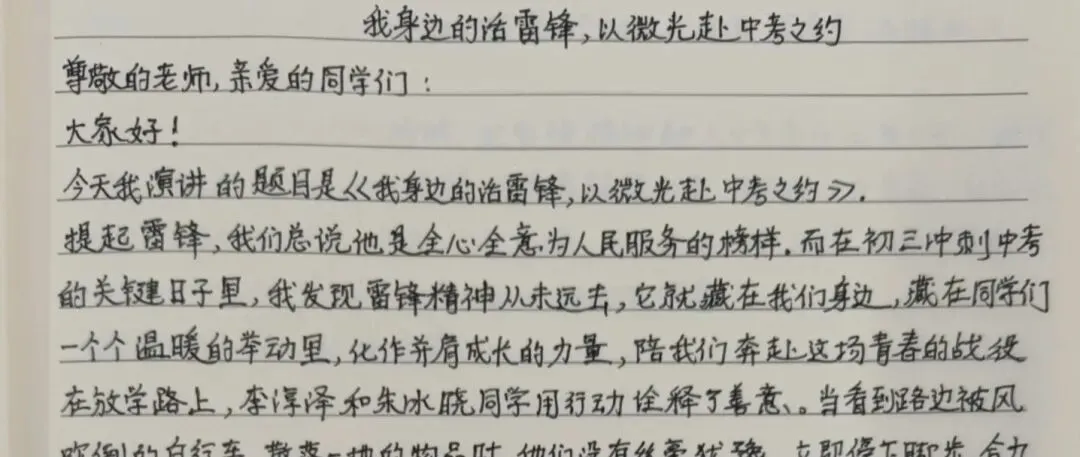 我身边的活雷锋,以微光赴中考之约
尊敬的老师,亲爱的同学们:
大家好!
今天我演讲的题目是《我身边的活雷锋,以微光赴中考之约》.
提起雷锋,我们总说他是全心全意为人民服务的榜样.而在初三冲刺中考
的关键日子里,我发现雷锋精神从未远去,它就藏在我们身边,藏在同学们
一个个温暖的举动里,化作并肩成长的力量,陪我们奔赴这场青春的战役
在放学路上,李淳泽和朱冰晓同学用行动诠释了善意、。当看到路边被风
吹倒的自行车、散落一地的物品时,他们没有丝毫犹豫,立即停下脚步,合力